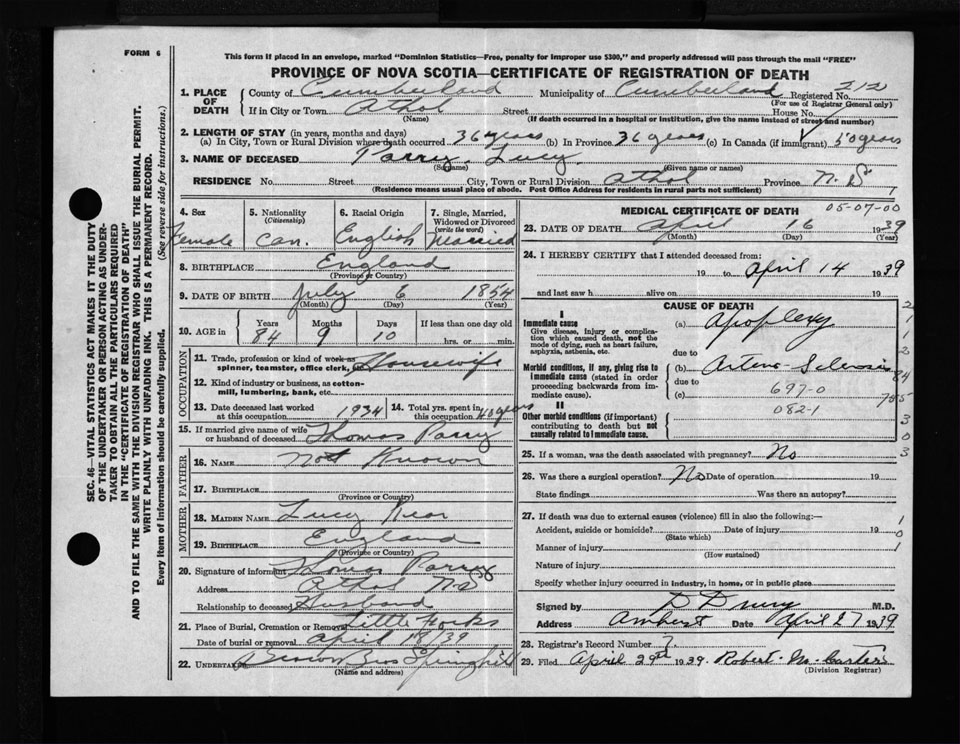 FORM 6
This form if placed in an envelope, marked "Dominion Statistics—Free, penalty for improper use $300," and properly addressed will pass through the mail "FREE"
PROVINCE OF NOVA SCOTIA—CERTIFICATE OF REGISTRATION OF DEATH
1. PLACE OF DEATH County of Cumberland Municipality of Cumberland Registered No. 212
(For use of Registrar General only)
If in City or Town Athol Street House No.
(Name) (If death occurred in a hospital or institution, give the name instead of street and number)
2. LENGTH OF STAY (in years, months and days)
(a) In City, Town or Rural Division where death occurred 36 years (b) In Province 36 years (c) In Canada (if immigrant) 50 years
3. NAME OF DECEASED Parry, Lucy
(Surname) (Given name or names)
RESIDENCE No. Street City, Town or Rural Division Athol Province N. S.
(Residence means usual place of abode. Post Office Address for residents in rural parts not sufficient)
4. Sex Female
5. Nationality (Citizenship) Can.
6. Racial Origin English
7. Single, Married, Widowed or Divorced (write the word) Married
8. BIRTHPLACE England
(Province or Country)
9. DATE OF BIRTH July 6 1854
(Month) (Day) (Year)
10. AGE in Years Months Days If less than one day old
84 9 10 hrs. or min.
OCCUPATION
11. Trade, profession or kind of work as spinner, teamster, office clerk, Housewife
12. Kind of industry or business, as cotton-mill, lumbering, bank, etc.
13. Date deceased last worked at this occupation 1934
14. Total yrs. spent in this occupation 40 years
15. If married give name of wife or husband of deceased Thomas Parry
FATHER
16. NAME Not Known
17. BIRTHPLACE
(Province or Country)
MOTHER
18. MAIDEN NAME Lucy
19. BIRTHPLACE England
(Province or Country)
20. Signature of informant Thomas Parry
Address Athol N.S
Relationship to deceased Husband
21. Place of Burial, Cremation or Removal Little Forks
Date of burial or removal April 18/39
22. UNDERTAKER Bros Springhill
(Name and address)
05-07-00
MEDICAL CERTIFICATE OF DEATH
23. DATE OF DEATH April 16 1939
(Month) (Day) (Year)
24. I HEREBY CERTIFY that I attended deceased from:
19 to April 14 1939
and last saw h alive on 19
CAUSE OF DEATH
I
Immediate cause
Give disease, injury or complication which caused death, not the mode of dying, such as heart failure, asphyxia, asthenia, etc.
(a) Apoplexy
due to
Morbid conditions, if any, giving rise to immediate cause (stated in order proceeding backwards from immediate cause).
(b) Arterio-Sclerosis
due to 697-0
(c) 082-1
II
Other morbid conditions (if important) contributing to death but not causally related to immediate cause.
25. If a woman, was the death associated with pregnancy? No
26. Was there a surgical operation? No Date of operation 19
State findings Was there an autopsy?
27. If death was due to external causes (violence) fill in also the following:—
Accident, suicide or homicide? Date of injury 19
(State which)
Manner of injury
(How sustained)
Nature of injury
Specify whether injury occurred in industry, in home, or in public place
Signed by D Drury M.D.
Address Amherst Date April 27 1939
28. Registrar's Record Number 7.
29. Filed April 29th 1939. Robert M. Carter
(Division Registrar)
SEC. 46—VITAL STATISTICS ACT MAKES IT THE DUTY
OF THE UNDERTAKER OR PERSON ACTING AS UNDER-
TAKER TO OBTAIN ALL THE PARTICULARS REQUIRED
IN THE "CERTIFICATE OF REGISTRATION OF DEATH"
AND TO FILE THE SAME WITH THE DIVISION REGISTRAR WHO SHALL ISSUE THE BURIAL PERMIT.
WRITE PLAINLY WITH UNFADING INK. THIS IS A PERMANENT RECORD.
Every item of information should be carefully supplied. (See reverse side for instructions.)